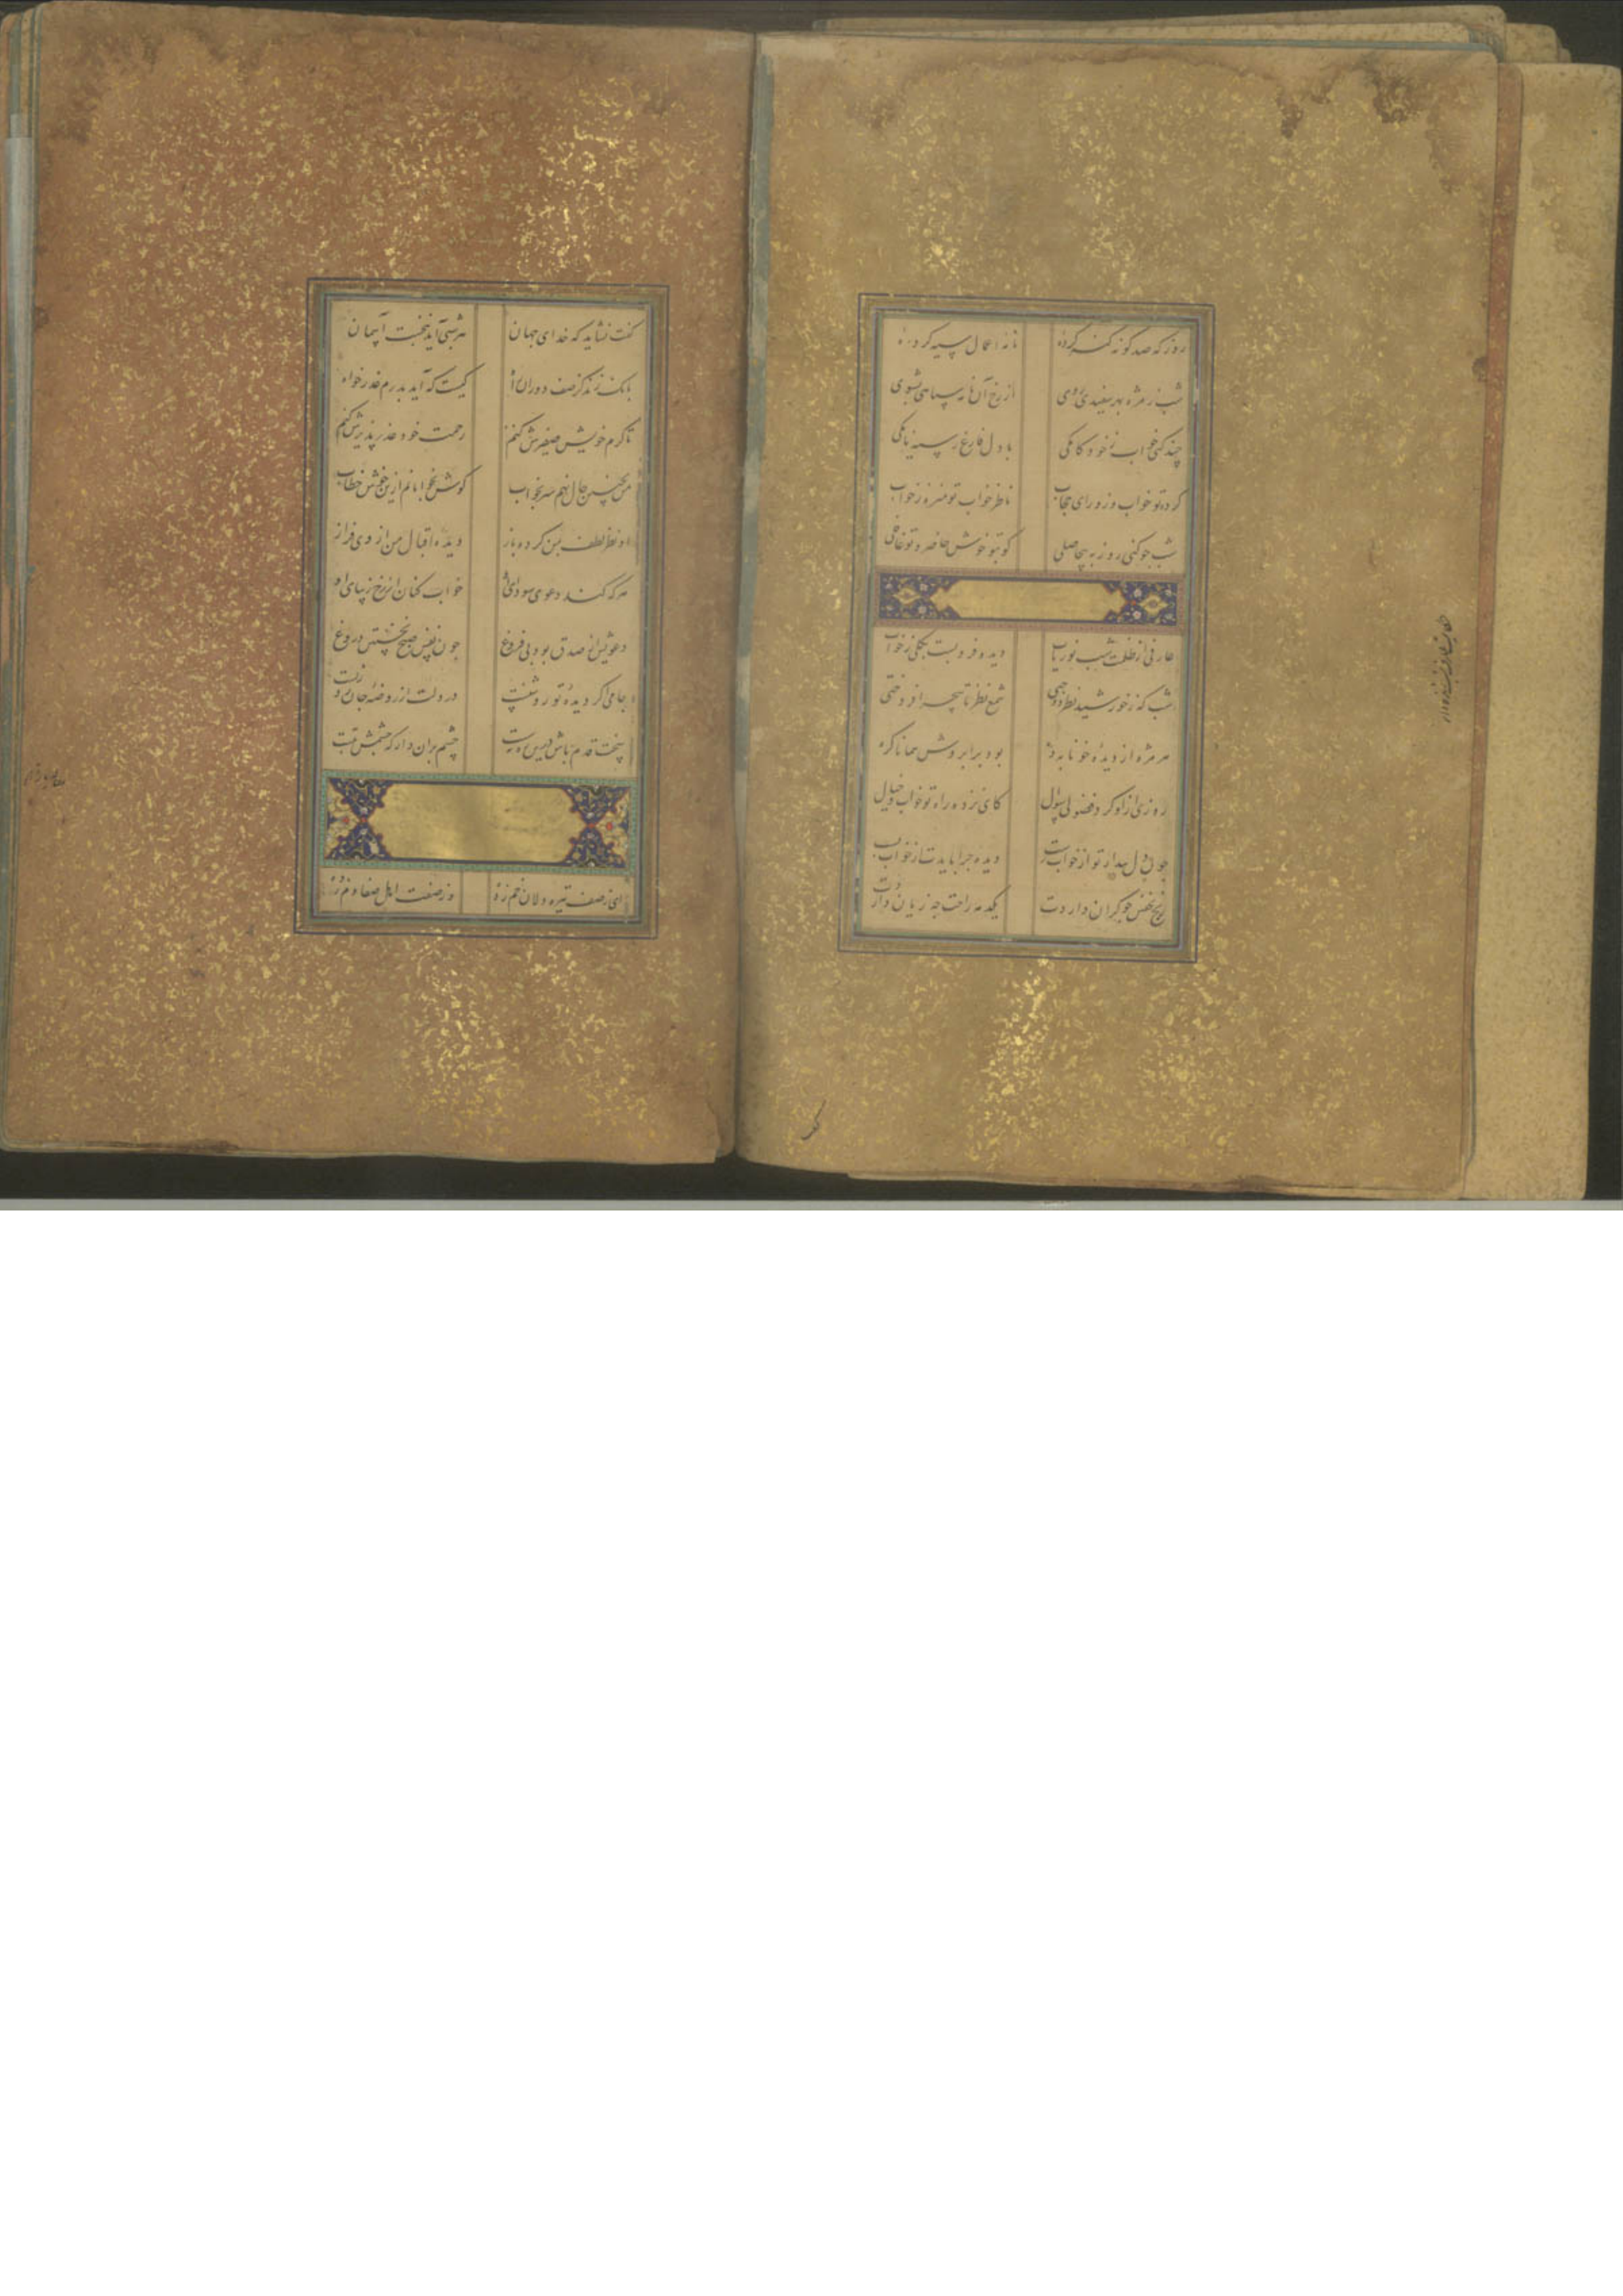 روز که صد گونه گنه کرده
نامه اعمال سیه کرده
شب ز مژه بهر سفیدی روی
از رخ آن نامه سیاهی بشوی
چند کنی خواب ز خود کامگی
با دل فارغ ز سیه نامگی
کرده تو خواب وز ورای حجاب
ناظر خواب تو منزه ز خواب
شب چو کنی روز به بیحاصلی
کو بتو خوش حاضر و تو غافلی
عارفی از ظلمت شب نور یاب
دیده فرو بست بکلی ز خواب
شب که ز خورشید نظر دوختی
شمع نظر تا بسحر افروختی
هر مژه از دیده خونابه
بود برابروش همانا گره
روزی ازو کرد فضولی سؤال
کای نزده راه تو خواب و خیال
چون دل بیدار تو از خواب رست
دیده چرا بایدت از خواب بست
رنج چو گران داردت
یکدمه راحت چه زیان داردت
گفت نشاید که خدای جهان
هر شبی آید بنخست آسمان
بانگ زند کز صف دوران راه
کیست که آید بدرم عذر خواه
تا کرم خویش صفیرش کنم
رحمت خود عذر پذیرش کنم
من بچنین حال نهم سر بخواب
گوش بخوابانم ازین خوش خطاب
او نظر لطف بمن کرده باز
دیده اقبال من از وی فراز
هر که کند دعوی سودای او
خواب کنان از رخ زیبای او
دعویش از صدق بود بی فروغ
چون نفس صبح نخستین دروغ
جامی اگر دیده تو روشنست
در دلت از روضه جان روزنست
سخت قدم باش درین ره
چشم بران دار که چشمش بتست
ای ز صف تیره دلان خم زده
وز صفت اهل صفا دم زده